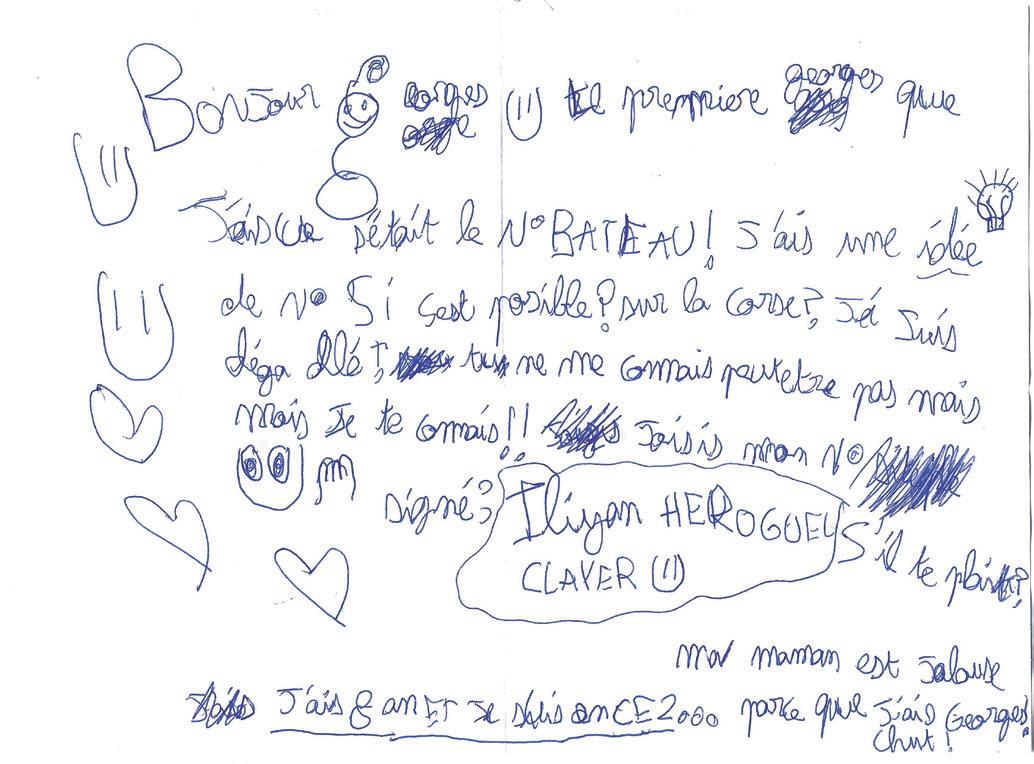 Bonjour Georges le prempiere georges que
J'ais eu s'était le N° BATEAU! J'ais une idée
de N° Si çest posible? sur la corse?, Jé suis
déga allé!, tu ne me connais peutetre pas mais
mais Je te connais!! Joisis mon N°
signé: Iliyan HEROGUEL
CLAYER S'il te plait?
ma maman est Jalouse
J'ais 8 an ET Je suis en CE2ooo parce que J'ais Georges!
chut!